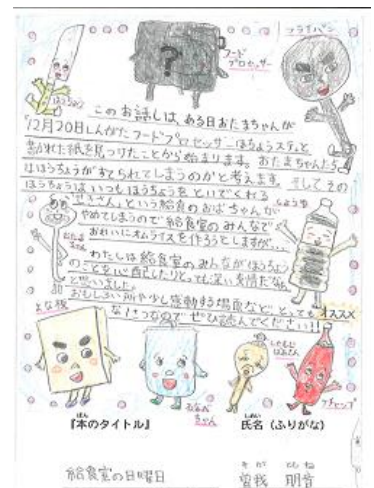 フライパン
フード
プロセッサー
ほうちょう
このお話しは、ある日おたまちゃんが
「12月20日しんがたフードプロセッサーほうちょうステ」と
書かれた紙を見つけたことから始まります。おたまちゃんたち
はほうちょうがすてられてしまうのかと考えます。そしてその
ほうちょうはいつもほうちょうをといでくれる
という給食のおばちゃんが
やめてしまうので給食室のみんなで
おれいにオムライスを作ろうとしますが、…
しょうゆ
おたま
ちゃん
わたしは給食室のみんながほうちょう
のことを心配したりとっても深い友情だなぁ
と思いました。
おもしろい所や少し感動する場面など、とってもオススメ
なけつなのでぜひ読んでください!!
まな板
おなべ
ちゃん
しゃもじ
ばあさん
ケチャップ
『本のタイトル』
ほん
氏名(ふりがな)
しめい
給食室の日曜日
曽我 明音
そが